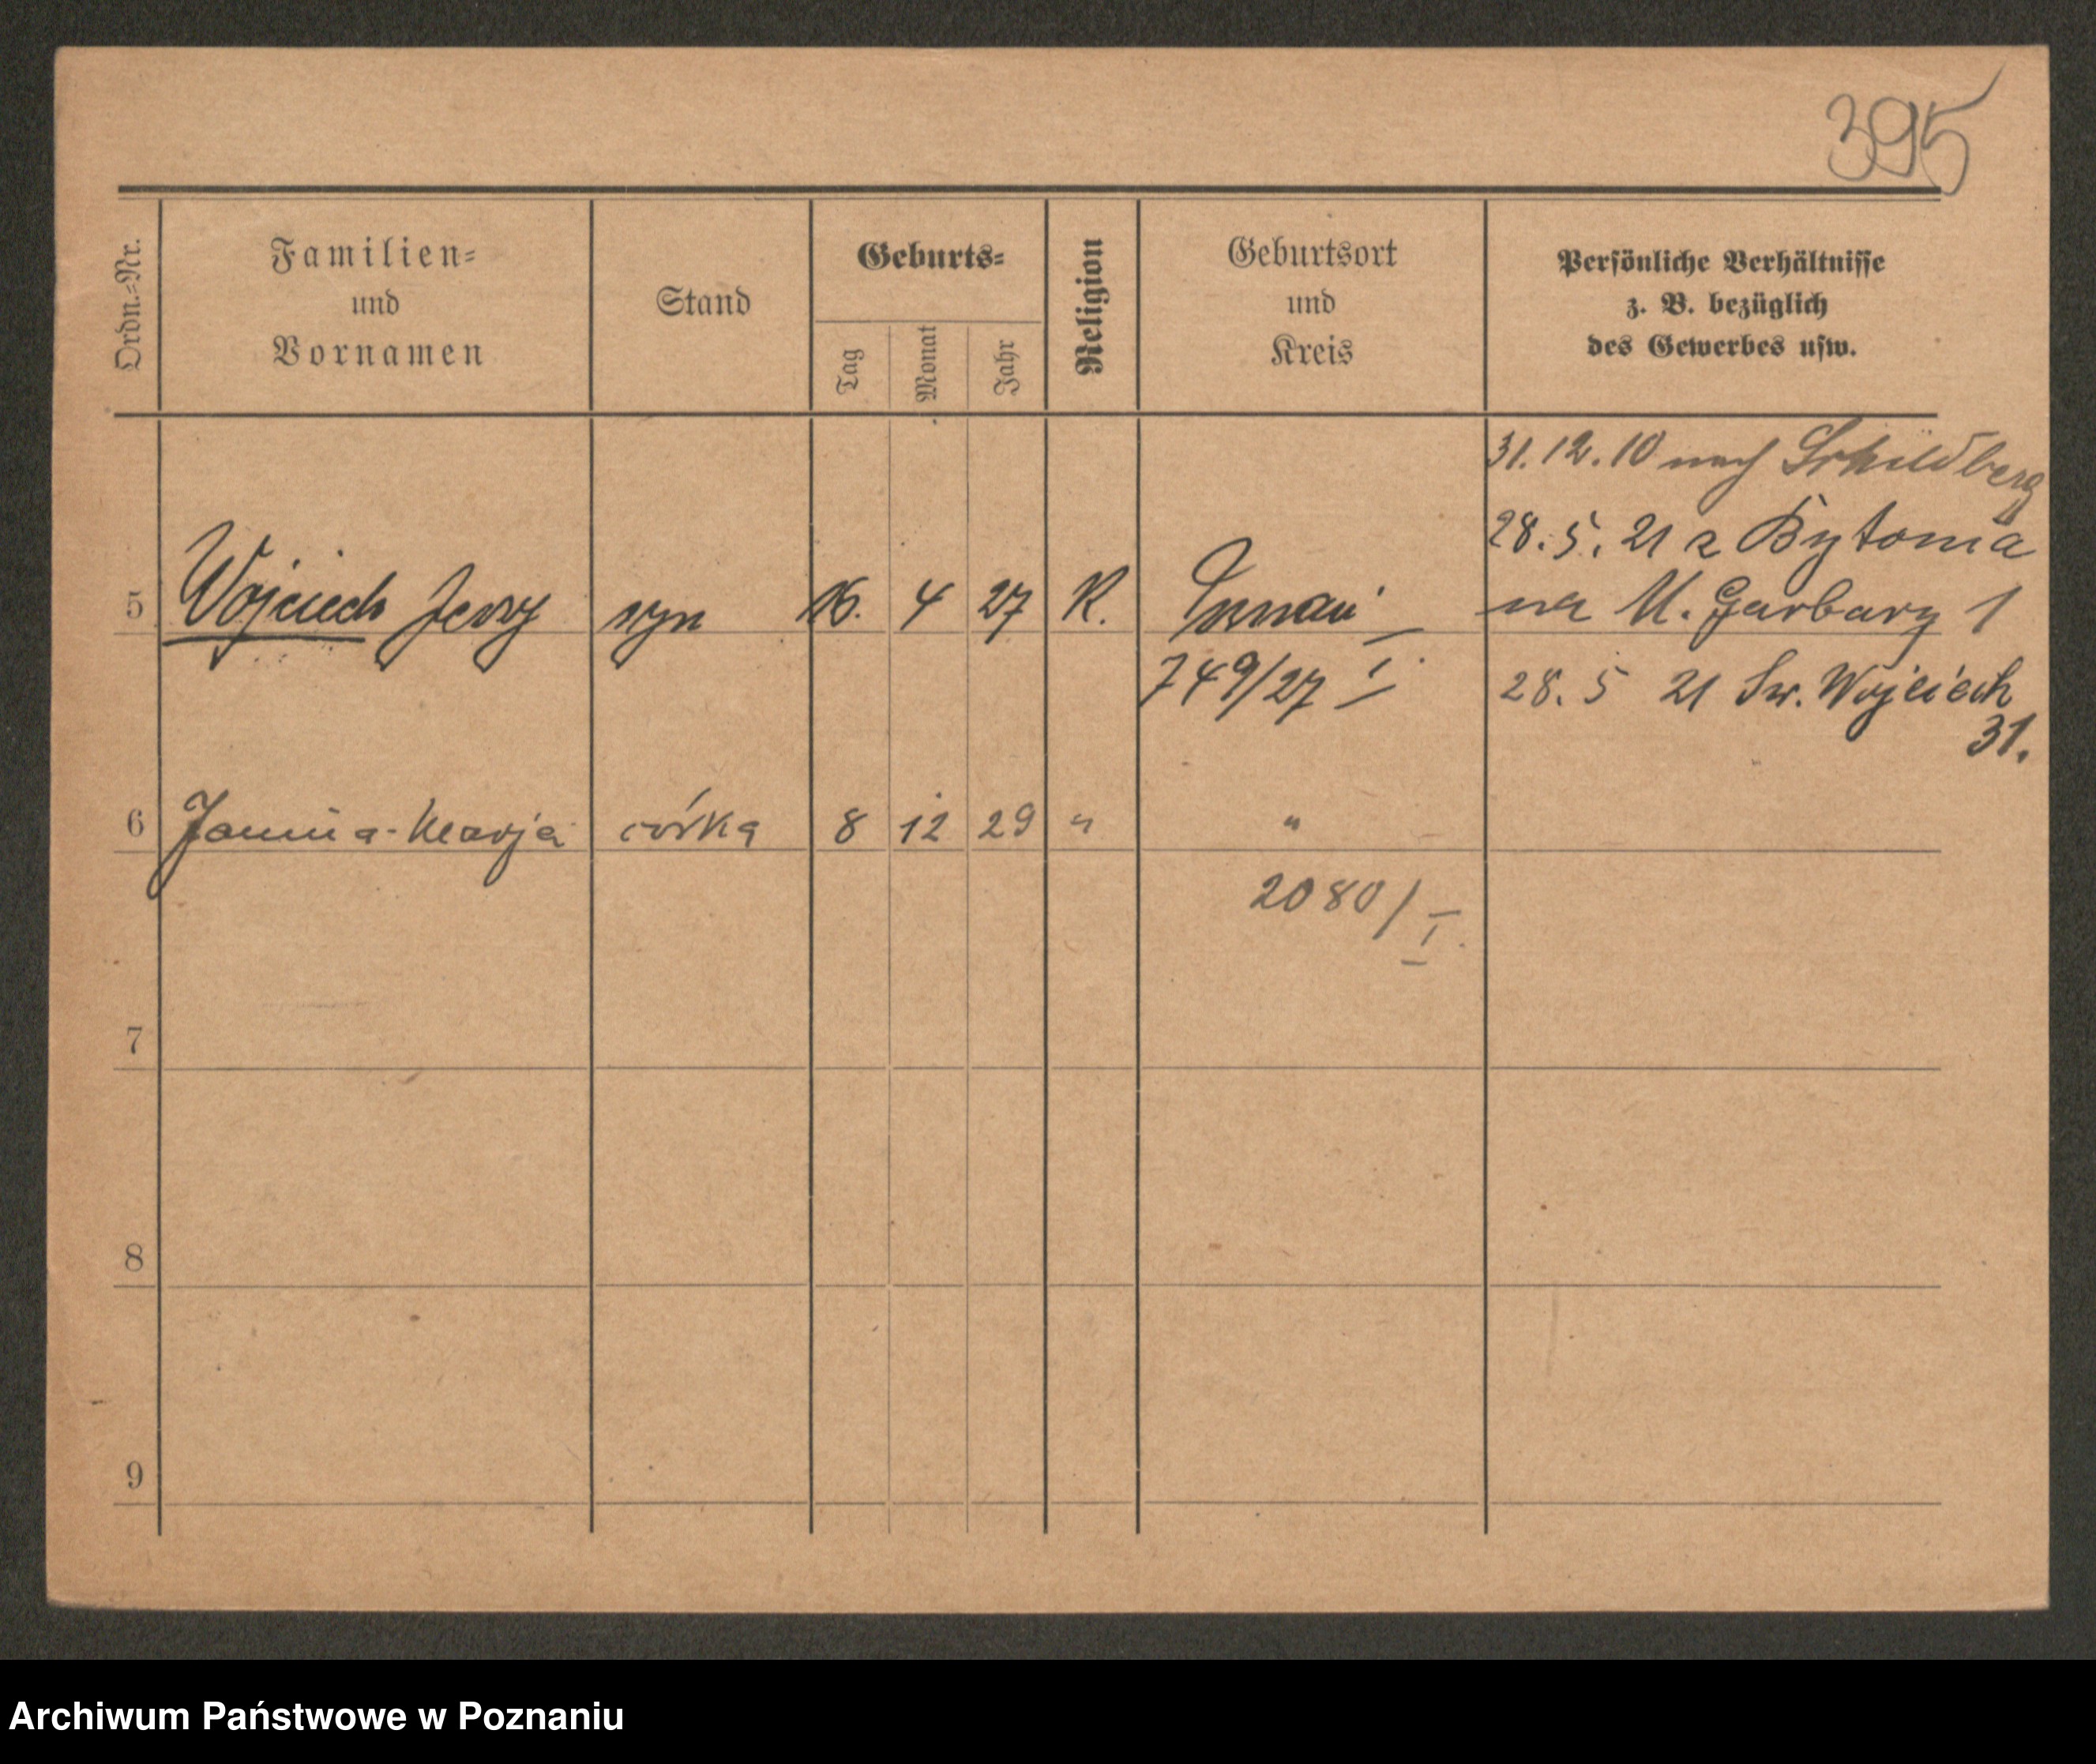 395
Ordn.-Nr.
Familien-
und
Vornamen
Stand
Geburts-
Tag
Monat
Jahr
Religion
Geburtsort
und
Kreis
Persönliche Verhältnisse
z. B. bezüglich
des Gewerbes usw.
31.12.10 nach Schildberg
28.5.21 z Bytomia
5 Wojciech Jerzy syn 16. 4 27 K.
na M. Garbary 1
749/27 I
28.5 21 Św. Wojciech
31.
6 Janina-Marja córka 8 12 29 " "
2080/I.
7
8
9
Archiwum Państwowe w Poznaniu